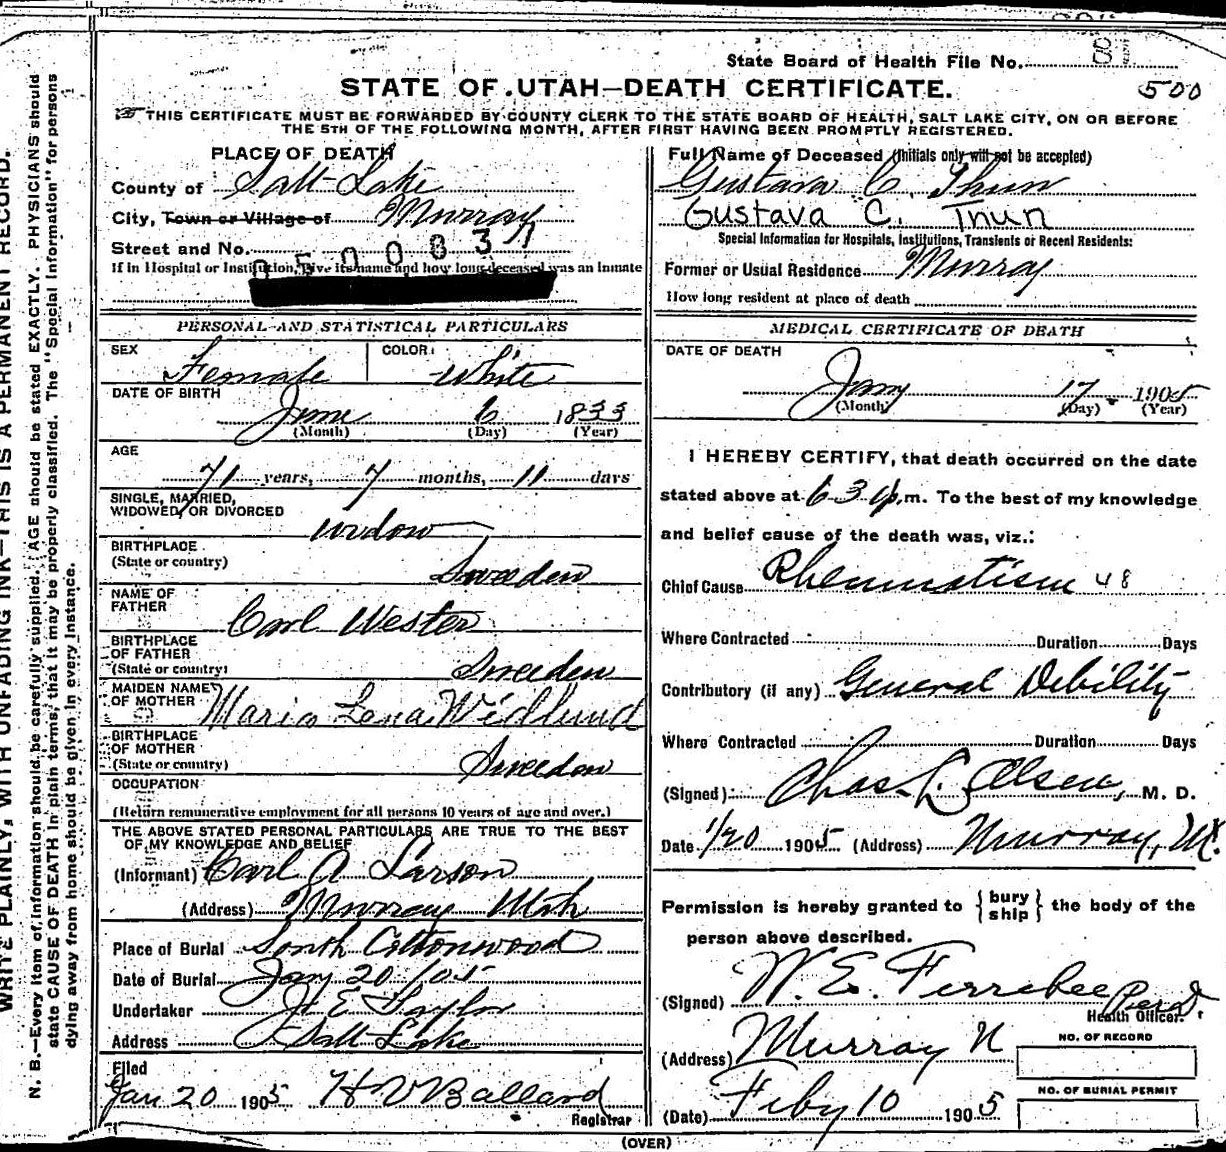 State Board of Health File No. 81
STATE OF UTAH—DEATH CERTIFICATE.
500
THIS CERTIFICATE MUST BE FORWARDED BY COUNTY CLERK TO THE STATE BOARD OF HEALTH, SALT LAKE CITY, ON OR BEFORE
THE 5TH OF THE FOLLOWING MONTH, AFTER FIRST HAVING BEEN PROMPTLY REGISTERED.
WRITE PLAINLY, WITH UNFADING INK—THIS IS A PERMANENT RECORD.
N. B.—Every item of information should be carefully supplied. AGE should be stated EXACTLY. PHYSICIANS should
state CAUSE OF DEATH in plain terms, that it may be properly classified. The "Special Information" for persons
dying away from home should be given in every instance.
PLACE OF DEATH
County of Salt Lake
City, Town or Village of Murray
Street and No.
050083
If in Hospital or Institution, give its name and how long deceased was an inmate
PERSONAL AND STATISTICAL PARTICULARS
SEX Female COLOR: White
DATE OF BIRTH
June 6 1833
(Month) (Day) (Year)
AGE
71 years, 7 months, 11 days
SINGLE, MARRIED,
WIDOWED, OR DIVORCED widow
BIRTHPLACE
(State or country) Sweeden
NAME OF
FATHER Carl Wester
BIRTHPLACE
OF FATHER
(State or country) Sweeden
MAIDEN NAME
OF MOTHER Maria Lena Widlund
BIRTHPLACE
OF MOTHER
(State or country) Sweedon
OCCUPATION
(Return remunerative employment for all persons 10 years of age and over.)
THE ABOVE STATED PERSONAL PARTICULARS ARE TRUE TO THE BEST
OF MY KNOWLEDGE AND BELIEF
(Informant) Carl A Larson
(Address) Murray Utah
Place of Burial South Cottonwood
Date of Burial Jan 20/05
Undertaker E Taylor
Address Salt Lake
Filed
Jan 20 1905 H V Ballard
Registrar
Full Name of Deceased (Initials only will not be accepted)
Gustava C. Thun
Gustava C. Thun
Special Information for Hospitals, Institutions, Transients or Recent Residents:
Former or Usual Residence Murray
How long resident at place of death
MEDICAL CERTIFICATE OF DEATH
DATE OF DEATH
Jany 17 1905
(Month) (Day) (Year)
I HEREBY CERTIFY, that death occurred on the date
stated above at 6 30 p.m. To the best of my knowledge
and belief cause of the death was, viz.:
Chief Cause Rheumatism 48
Where Contracted Duration Days
Contributory (if any) General Debility
Where Contracted Duration Days
(Signed) Chas. L. Olsen, M. D.
Date 1/20 1905 (Address) Murray, Ut.
Permission is hereby granted to {bury ship} the body of the
person above described.
(Signed) W. E. Ferrebee
Health Officer.
(Address) Murray U
NO. OF RECORD
NO. OF BURIAL PERMIT
(Date) Feby 10 1905
(OVER)